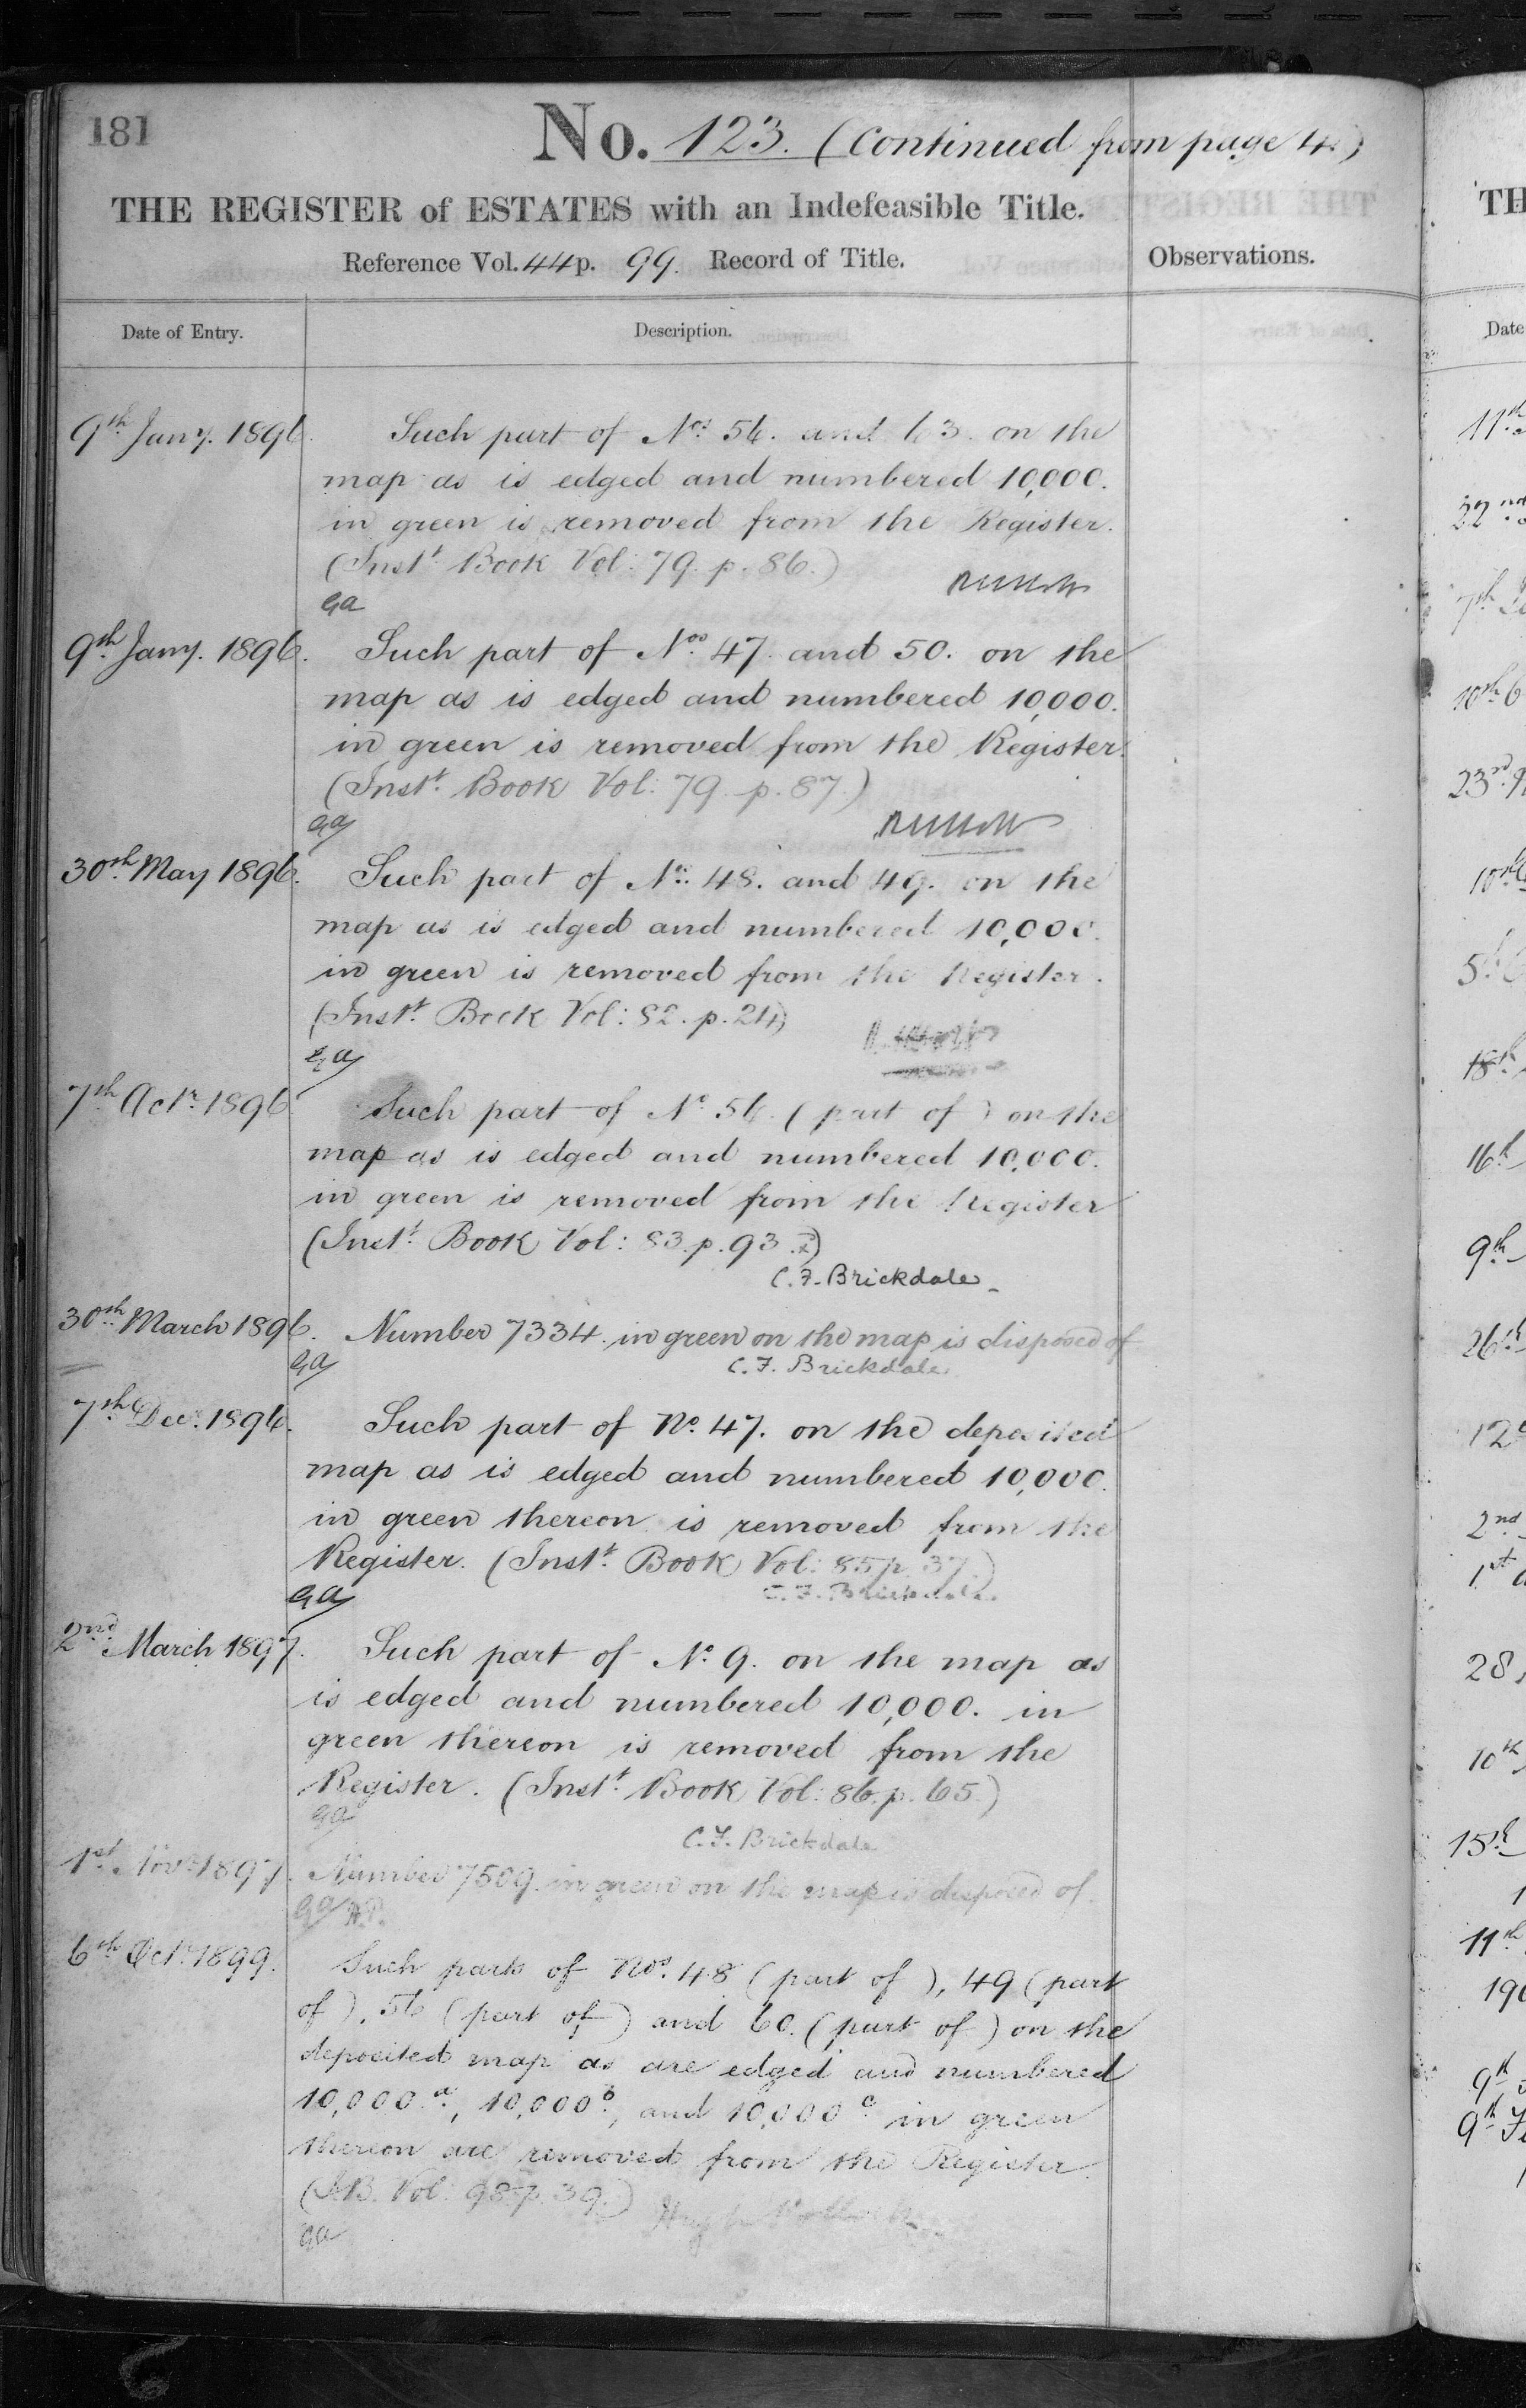 181
No. 123. (Continued from page 4.)
THE REGISTER of ESTATES with an Indefeasible Title.
Reference Vol. 44 p. 99. Record of Title.
Observations.
Date of Entry.
Description.
9th Jany. 1896. Such part of Nos 56. and 63. on the
map as is edged and numbered 10,000.
in green is removed from the Register.
(Instt. Book Vol: 79. p. 86.)
GA
9th Jany. 1896. Such part of Nos 47. and 50. on the
map as is edged and numbered 10,000.
in green is removed from the Register.
(Instt. Book Vol: 79. p. 87.)
GA
30th May 1896. Such part of Nos. 48. and 49. on the
map as is edged and numbered 10,000.
in green is removed from the Register.
(Instt. Book Vol: 82. p. 24)
GA
7th Octr. 1896 Such part of No 56. (part of) on the
map as is edged and numbered 10,000.
in green is removed from the Register
(Instt. Book Vol: 83. p. 93.)
C.F. Brickdale
30th March 1896. Number 7334. in green on the map is disposed of
GA C.F. Brickdale
7th Decr. 1896. Such part of No. 47. on the deposited
map as is edged and numbered 10,000.
in green thereon is removed from the
Register. (Instt. Book Vol: 85 p. 37.)
GA C.F. Brickdale.
2nd March 1897. Such part of No 9. on the map as
is edged and numbered 10,000. in
green thereon is removed from the
Register. (Instt. Book Vol: 86. p. 65.)
GA
C.F. Brickdale
1st Novr. 1897. Number 7509. in green on the map is disposed of.
GA H.P.
6th Octr. 1899. Such parts of Nos. 48 (part of), 49 (part
of), 56 (part of) and 60. (part of) on the
deposited map as are edged and numbered
10,000.a, 10,000b, and 10,000c in green
thereon are removed from the Register.
(I.B. Vol: 98. p. 39.) Hugh Pollock
GA
TH
Date
11th
22nd
7th
10th
23rd
5th
18th
16th
9th
26th
2nd
1st
28
10th
15th
11th
190
9th
9th